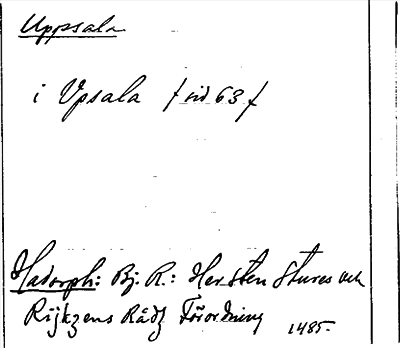 Uppsala
i Upsala / sid 63 /
Hadorph: Bj. R.: Her Sten Stures och
Rijkzens Rådz Förordning 1485.